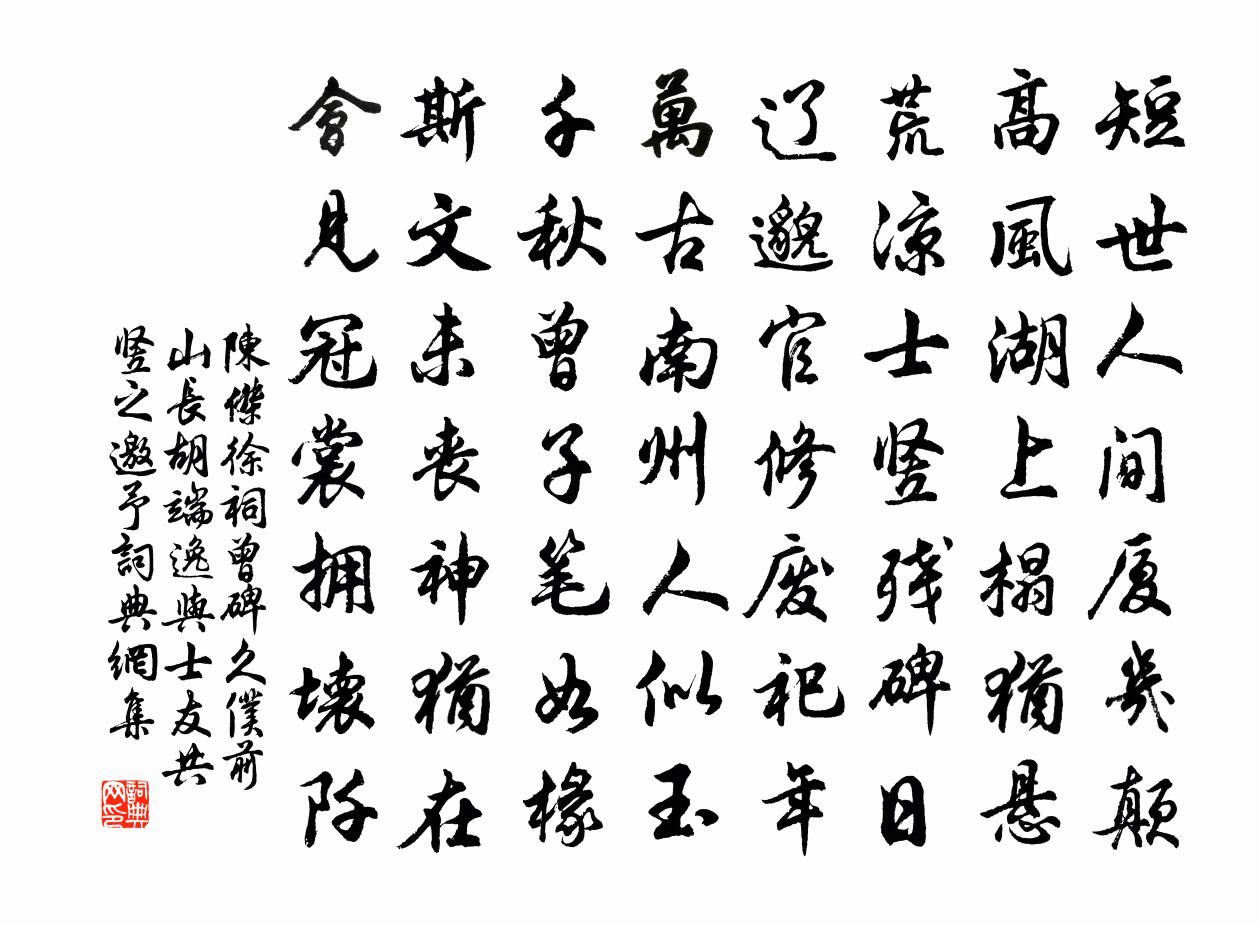 短世人间厦几颠
高風湖上榻猶悬
荒凉士竖残碑日
辽邈官修废祀年
萬古南州人似玉
千秋曾子笔如椽
斯文未丧神猶在
會見冠裳拥壊阡
陳傑徐祠曾碑久僕前
山長胡端逸與士友共
竖之邀予詞典網集
詞典网印